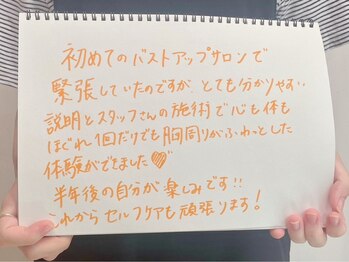 初めてのバストアップサロンで
緊張していたのですが、とても分かりやすい
説明とスタッフさんの施術で心も体も
ほぐれ1回だけでも胸周りがふわっとした
体験ができました♡
半年後の自分が楽しみです!!
これからセルフケアも頑張ります!